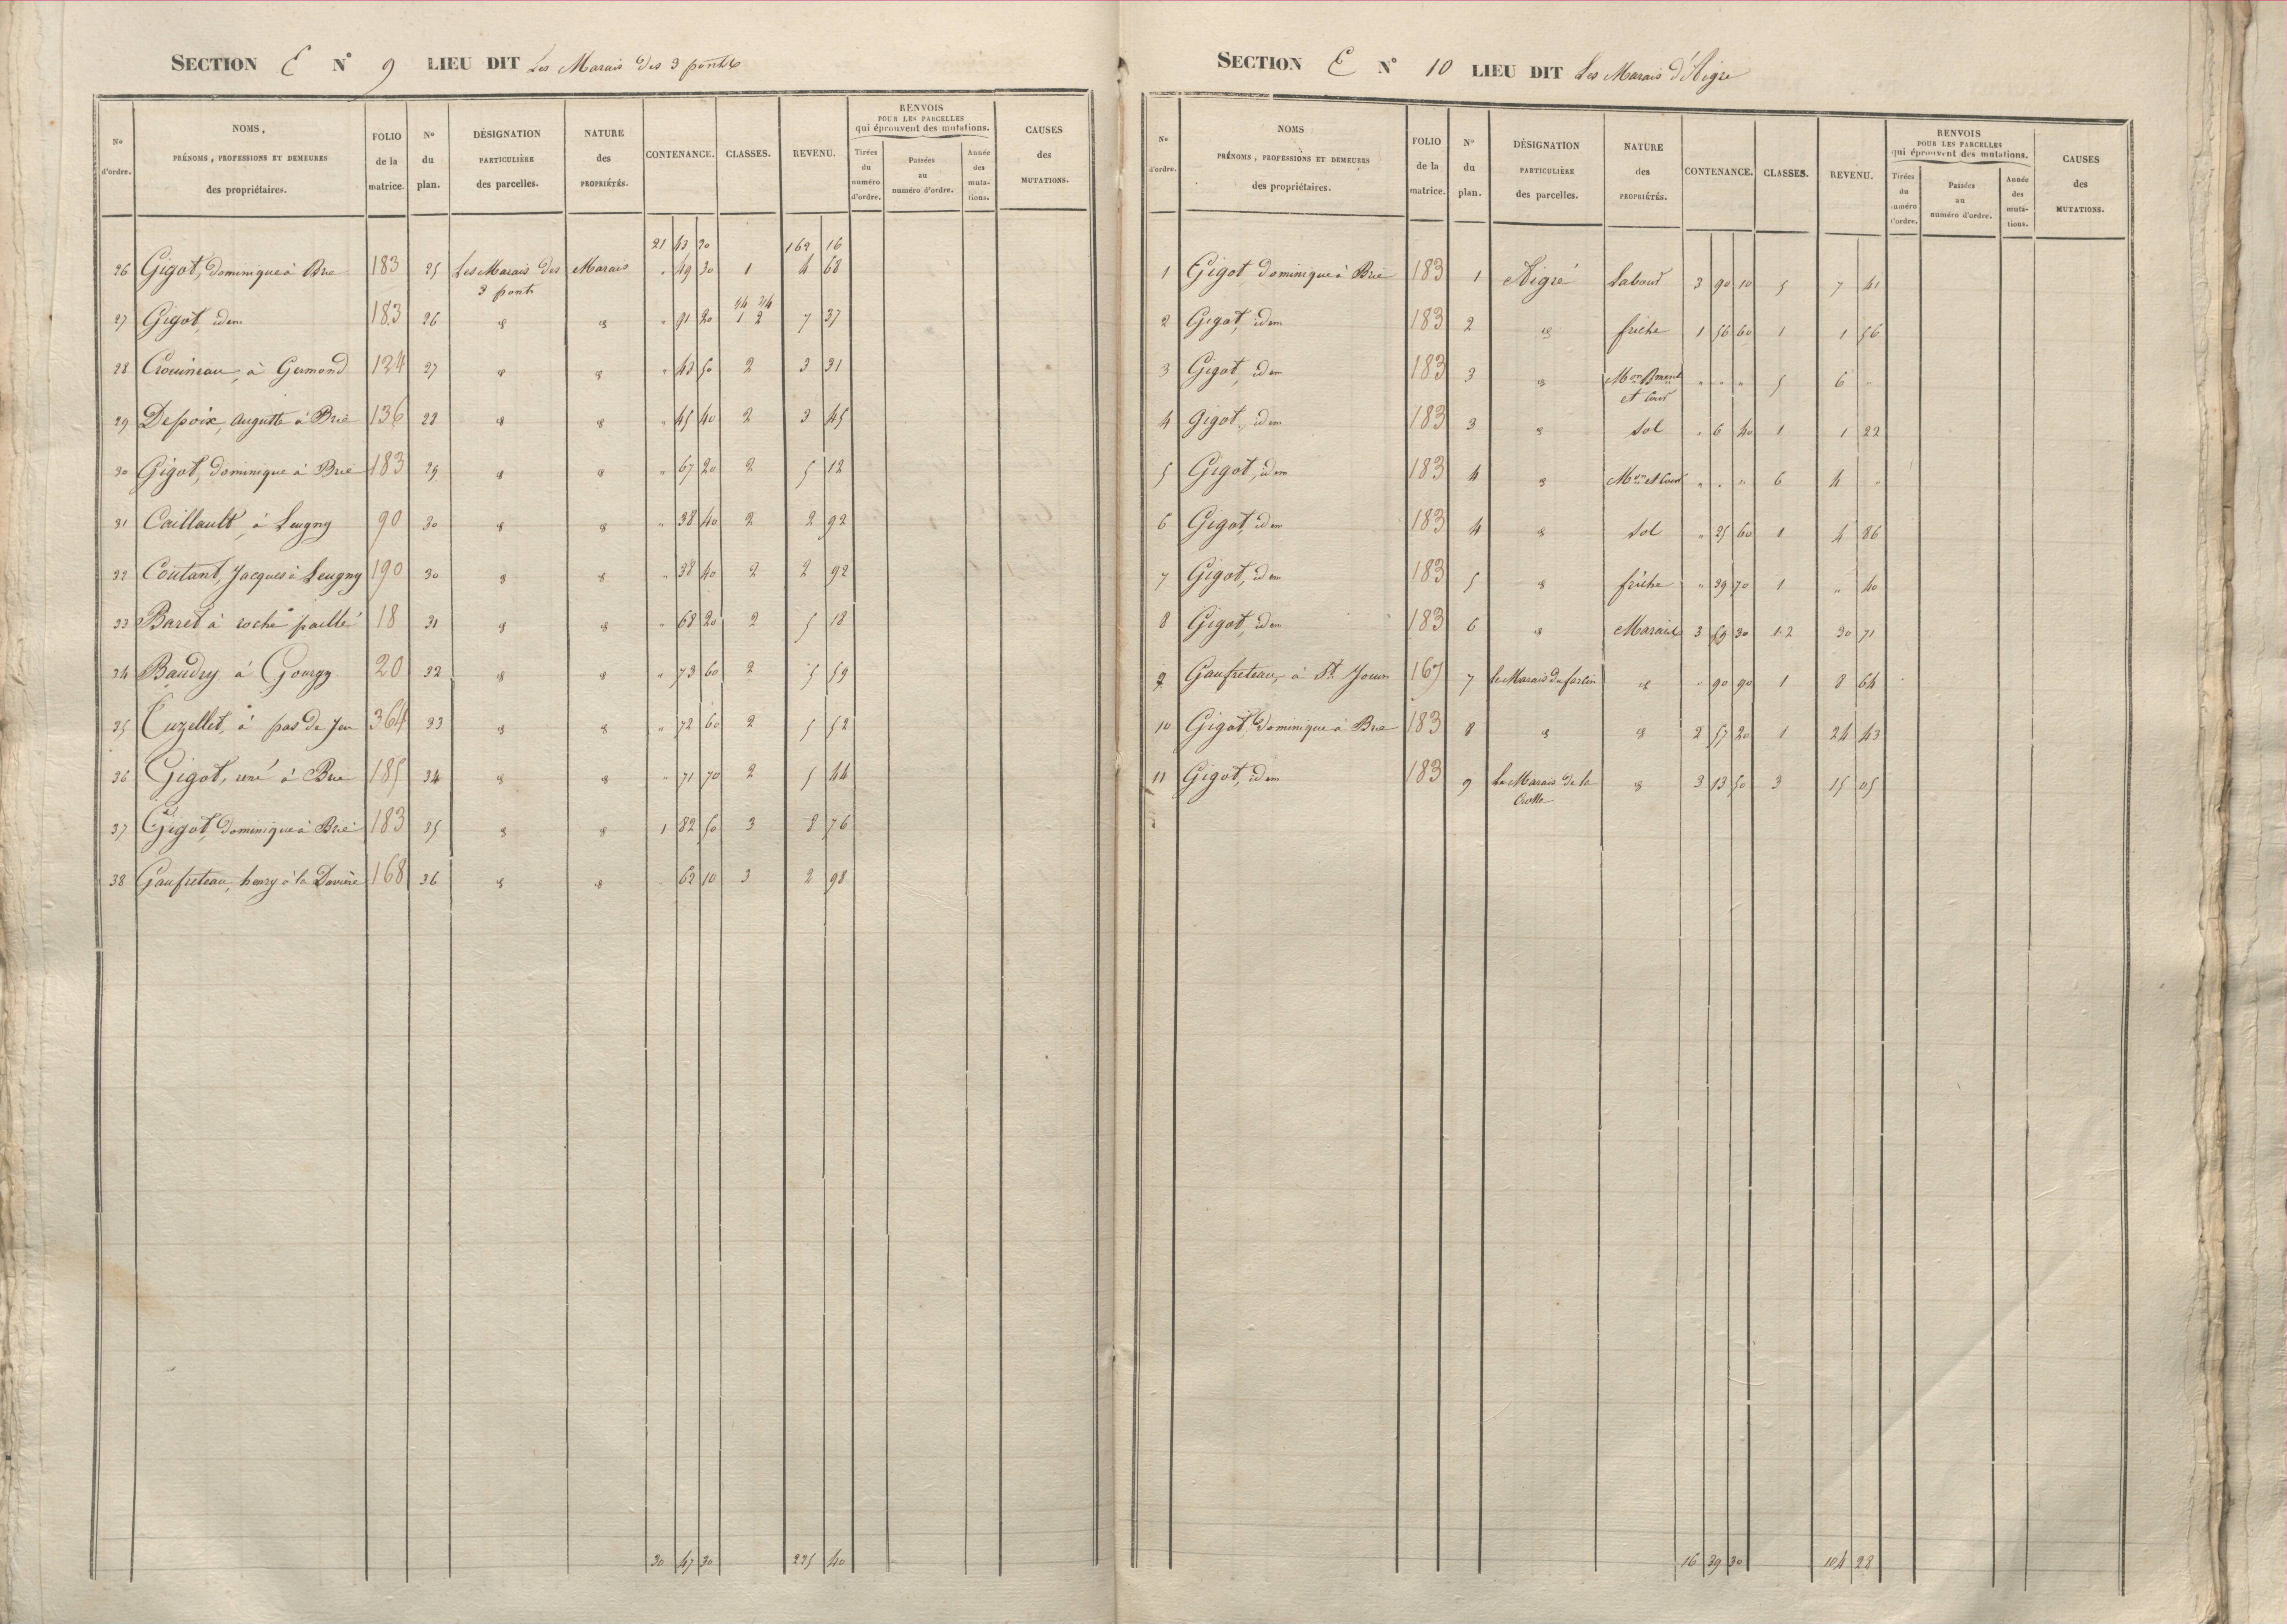 SECTION E N° 9 LIEU DIT Les Marais des 3 ponts
N° d'ordre. NOMS, PRÉNOMS, PROFESSIONS ET DEMEURES des propriétaires. FOLIO de la matrice. N° du plan. DÉSIGNATION PARTICULIÈRE des parcelles. NATURE des PROPRIÉTÉS. CONTENANCE. CLASSES. REVENU. RENVOIS POUR LES PARCELLES qui éprouvent des mutations. Tirées du numéro d'ordre. Passées au numéro d'ordre. Année des mutations. CAUSES des MUTATIONS.
21 43 30 162 16
26 Gigot, dominique à Brie 183 25 Les Marais des 3 ponts Marais " 49 30 1 4 68
27 Gigot, idem 183 26 id id " 91 20 1/4 3/4 1 2 7 37
28 Crouineau, à Germond 124 27 id id " 43 50 2 3 31
29 Depoix, auguste à Brie 136 28 id id " 45 40 2 3 45
30 Gigot, dominique à Brie 183 29 id id " 67 20 2 5 12
31 Caillault, à Leugny 90 30 id id " 38 40 2 2 92
32 Coutant, Jacques à Leugny 190 30 id id " 38 40 2 2 92
33 Baret à roche paillé 18 31 id id " 68 20 2 5 18
34 Baudry à Gourgy 20 32 id id " 73 60 2 5 59
35 Cuzellet, à pas de Jeu 364 33 id id " 72 60 2 5 52
36 Gigot, rené à Brie 185 34 id id " 71 70 2 5 44
37 Gigot, dominique à Brie 183 35 id id 1 82 50 3 8 76
38 Gaufreteau, henry à la Davière 168 36 id id 62 10 3 2 98
30 47 30 225 40
SECTION E N° 10 LIEU DIT Les Marais d'Aigre
N° d'ordre. NOMS PRÉNOMS, PROFESSIONS ET DEMEURES des propriétaires. FOLIO de la matrice. N° du plan. DÉSIGNATION PARTICULIÈRE des parcelles. NATURE des PROPRIÉTÉS. CONTENANCE. CLASSES. REVENU. RENVOIS POUR LES PARCELLES qui éprouvent des mutations. Tirées du numéro d'ordre. Passées au numéro d'ordre. Année des mutations. CAUSES des MUTATIONS.
1 Gigot dominique à Brie 183 1 Aigré Labour 3 90 10 5 7 41
2 Gigot, idem 183 2 id friche 1 56 60 1 1 56
3 Gigot, idem 183 3 id Mon Bment et cour " " " 5 6 "
4 Gigot, idem 183 3 id Sol " 6 40 1 1 22
5 Gigot, idem 183 4 id Mon et cour " " " 6 4 "
6 Gigot, idem 183 4 id Sol " 25 60 1 4 86
7 Gigot, idem 183 5 id friche " 39 70 1 " 40
8 Gigot, idem 183 6 id Marais 3 59 30 1.2 30 71
9 Gaufreteau, à St Jouin 167 7 le Marais du farlin id " 90 90 1 8 64
10 Gigot, dominique à Brie 183 8 id id 2 57 20 1 24 43
11 Gigot, idem 183 9 Le Marais de la Crotte id 3 13 50 3 15 05
16 39 30 104 28